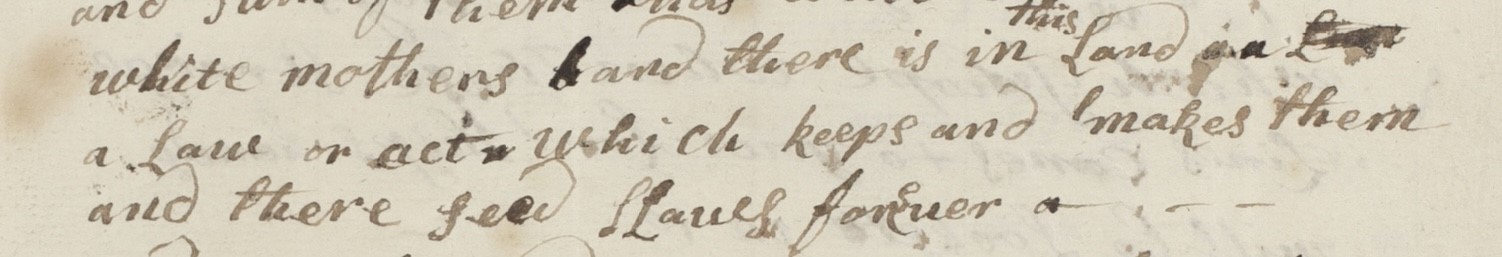 and sum of them
this
white mothers and there is in Land
a Law or act which keeps and makes them
and there seed Slaues foreuer